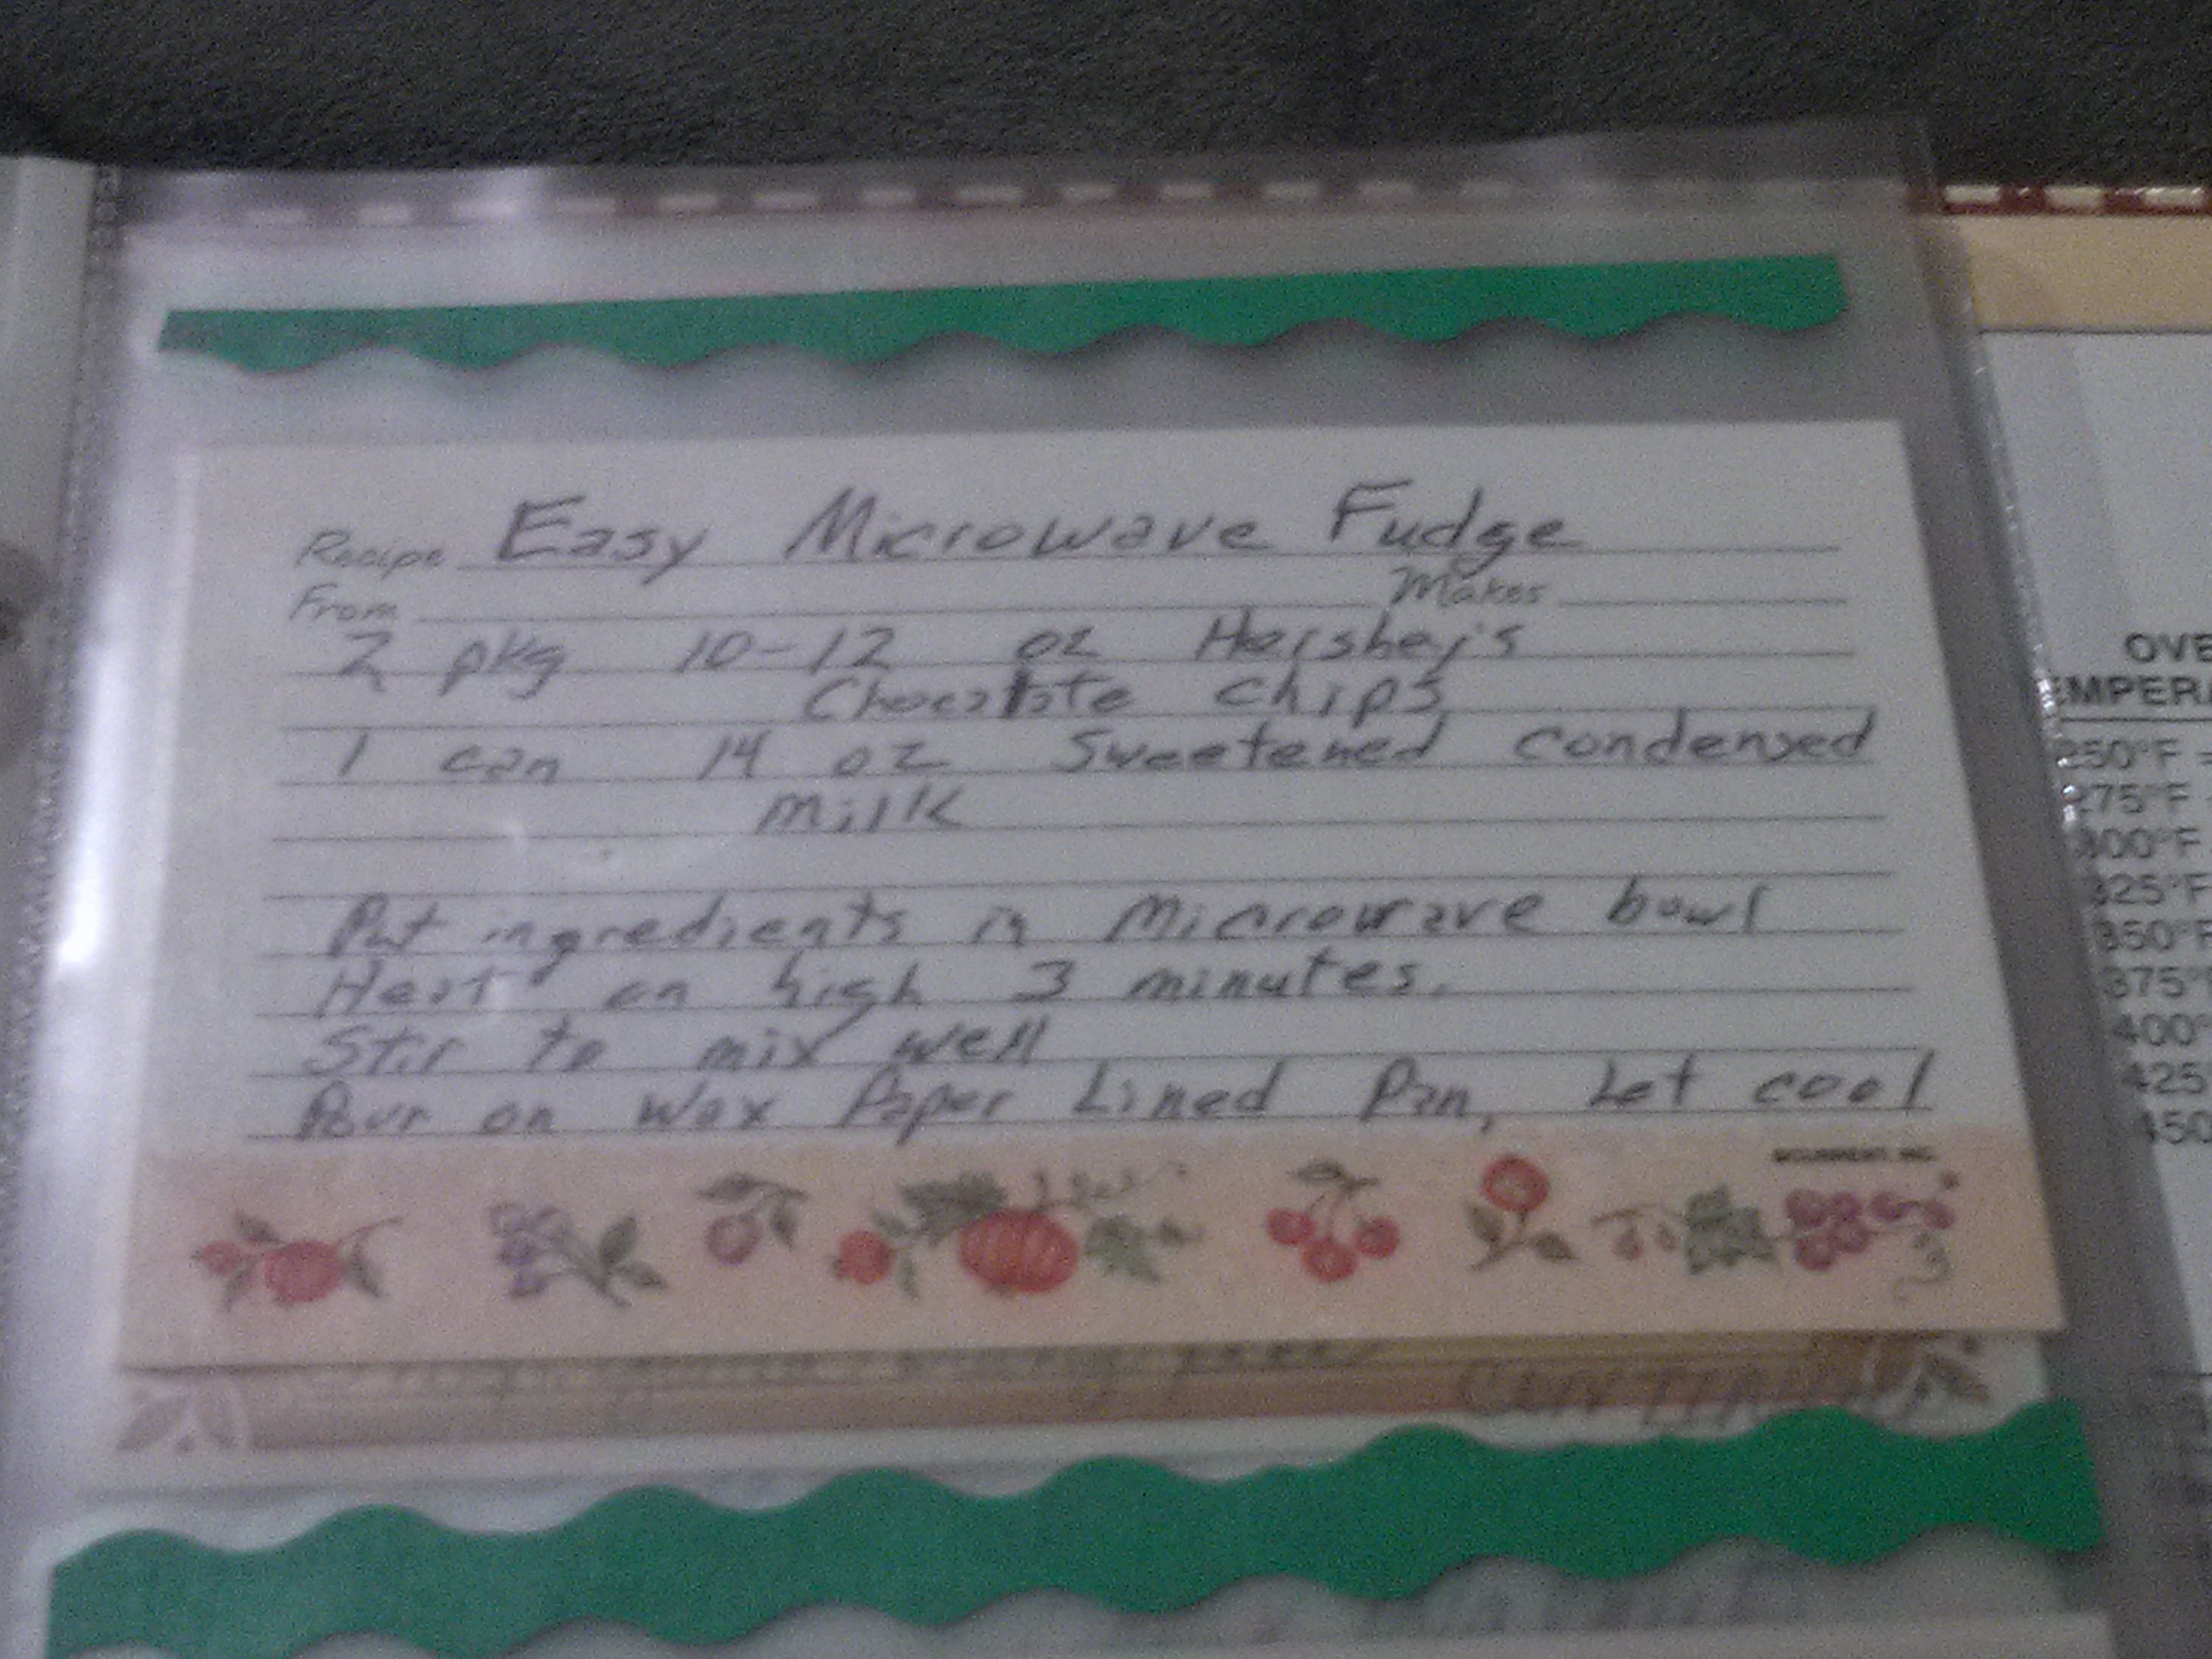 Recipe Easy Microwave Fudge
From Makes
2 pkg 10-12 oz Hershey's
Chocolate chips
1 can 14 oz Sweetened condensed
milk
Put ingredients in Microwave bowl
Heat on high 3 minutes.
Stir to mix well
Pour on wax Paper Lined Pan, Let cool
©CURRENT, INC.
OVE
EMPERA
250°F =
275°F
300°F
325°F
350°F
375°
400°
425
450